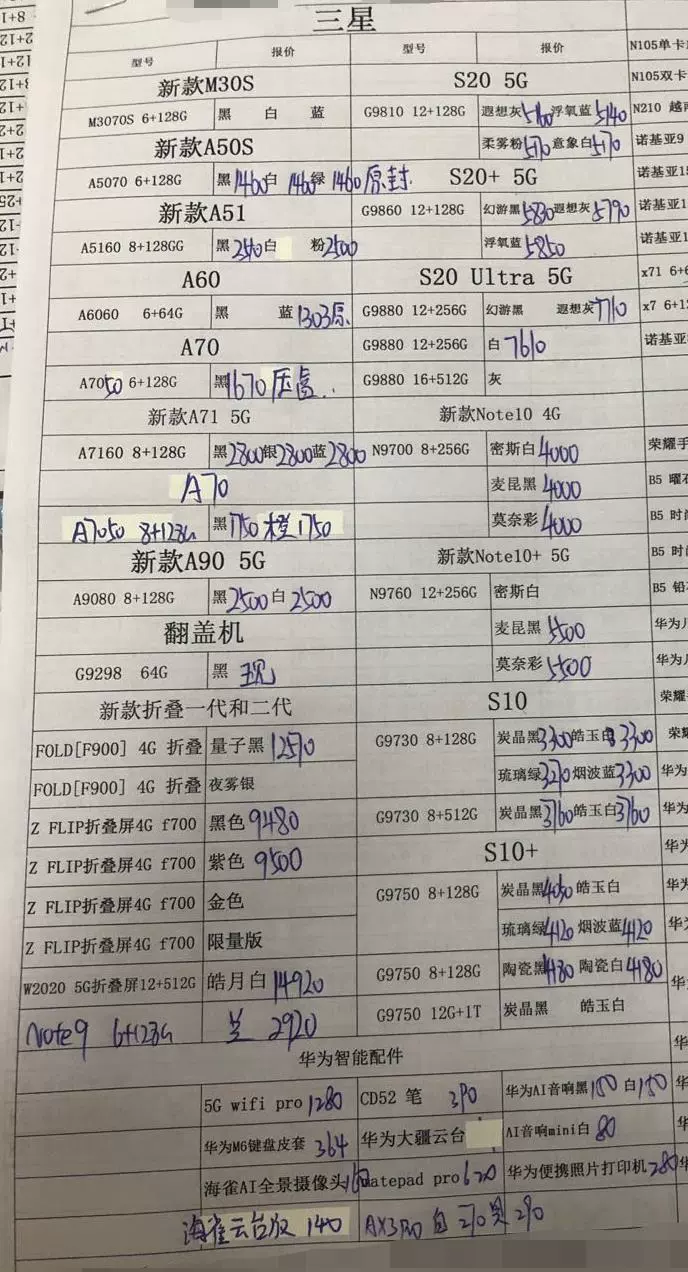 三星
型号 报价 型号 报价
新款M30S S20 5G
M3070S 6+128G 黑 白 蓝 G9810 12+128G 遐想灰 浮氧蓝5140
新款A50S 柔雾粉5170意象白5170
A5070 6+128G 黑1460白 1460绿 1460原封 S20+ 5G
新款A51 G9860 12+128G 幻游黑5830遐想灰5790
A5160 8+128GG 黑 白 粉2500 浮氧蓝5850
A60 S20 Ultra 5G
A6060 6+64G 黑 蓝1303原 G9880 12+256G 幻游黑 遐想灰7710
A70 G9880 12+256G 白7610
A7050 6+128G 黑1670 G9880 16+512G 灰
新款A71 5G 新款Note10 4G
A7160 8+128G 黑2800银2800蓝2800 N9700 8+256G 密斯白4000
A70 麦昆黑4000
A7050 8+128G 黑1750橙1750 莫奈彩4000
新款A90 5G 新款Note10+ 5G
A9080 8+128G 黑2500白2500 N9760 12+256G 密斯白
翻盖机 麦昆黑5500
G9298 64G 黑 现 莫奈彩5500
新款折叠一代和二代 S10
FOLD[F900] 4G 折叠 量子黑12570 G9730 8+128G 炭晶黑3300皓玉白3300
FOLD[F900] 4G 折叠 夜雾银 琉璃绿3270烟波蓝3300
Z FLIP折叠屏4G f700 黑色9480 G9730 8+512G 炭晶黑3760皓玉白3760
Z FLIP折叠屏4G f700 紫色9500 S10+
Z FLIP折叠屏4G f700 金色 G9750 8+128G 炭晶黑4050皓玉白
Z FLIP折叠屏4G f700 限量版 琉璃绿4120烟波蓝4120
W2020 5G折叠屏12+512G 皓月白14920 G9750 8+128G 陶瓷黑4180陶瓷白4180
Note9 6+128G 兰 2920 G9750 12G+1T 炭晶黑 皓玉白
华为智能配件
5G wifi pro 1280 CD52 笔 390 华为AI音响黑150白150
华为M6键盘皮套 364 华为大疆云台 AI音响mini白 80
海雀AI全景摄像头160 atepad pro 620 华为便携照片打印机280
海雀云台版 140 AX3Pro 白 270黑 290
N105单卡
N105双卡
N210 越
诺基亚9
诺基亚1
诺基亚1
诺基亚1
x71 6+6
x7 6+1
诺基亚
荣耀手
B5 曜
B5 时
B5 时
B5 铅
华为
华为
荣耀
荣耀
华为
华为
华为
华为
华为
华